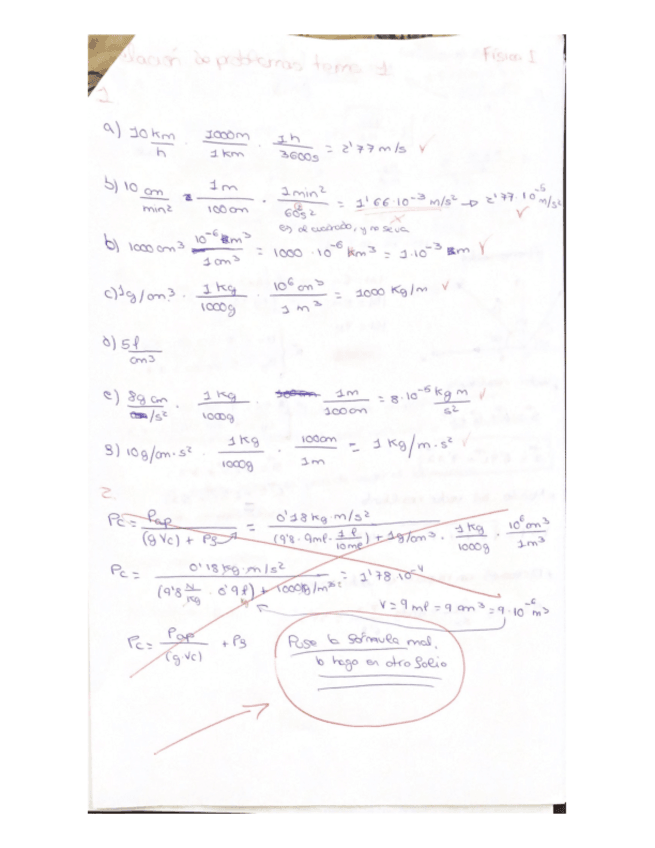 Relación de problemas tema 1 Física I
1
a) 10 km/h · 1000m/1km · 1h/3600s = 2'77 m/s ✓
b) 10 cm/min² · 1m/100cm · 1min²/60²s² = 1'66·10⁻³ m/s² → 2'77·10⁻⁵ m/s² ✓
es al cuadrado, y no se va
b) 1000 cm³ · 10⁻⁶ m³/1 cm³ = 1000·10⁻⁶ m³ = 1·10⁻³ m ✓
c) 1g/cm³ · 1kg/1000g · 10⁶ cm³/1 m³ = 1000 Kg/m ✓
d) 5l/cm³
e) 8g cm/s² · 1kg/1000g · 1m/100cm = 8·10⁻⁵ kg m/s² ✓
g) 10g/cm·s² · 1kg/1000g · 100cm/1m = 1 Kg/m·s² ✓
2.
Pc = Pap/((g Vc) + Pg) = 0'18 kg·m/s²/((9'8·9ml·1l/10ml) + 1g/cm³ · 1kg/1000g · 10⁶cm³/1m³
Pc = 0'18 kg·m/s²/((9'8 N/Kg · 0'9l) + 1000kg/m³ = 1'78·10⁻⁴
V = 9 ml = 9 cm³ = 9·10⁻⁶ m³
Pc = Pap/(g·Vc) + Pg
Puse la fórmula mal,
lo hago en otro folio